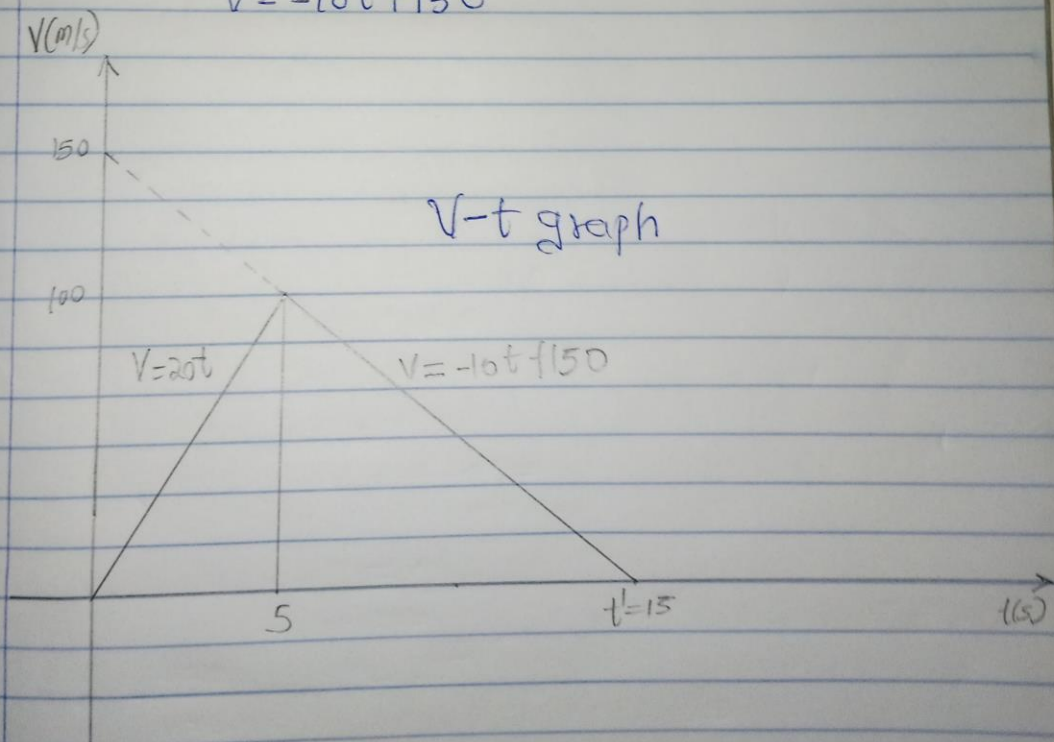 V = -10t+150
V(m/s)
150
V-t graph
100
V=20t
V=-10t+150
5
t'=15
t(s)